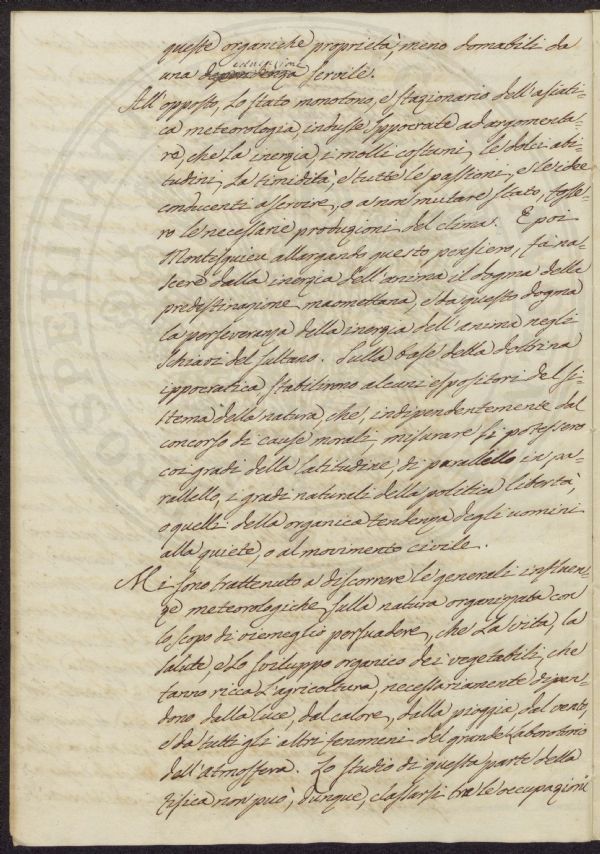 queste organiche proprietà, meno domabili da
educazione
una dipendenza servile.
All'opposto, lo stato monotono, e stazionario dell'asiati-
ca meteorologia, indusse Ippocrate ad argomenta-
re, che la inerzia, i molli costumi, le dolci abi-
tudini, la timidità, e tutte le passioni, e le idee
conducenti a servire, o a non mutare stato, fosse-
ro le necessarie produzioni del clima. E poi
Montesquieu allargando questo pensiero, fa na-
scere dalla inerzia dell'anima il dogma della
predestinazione maomettana, e da questo dogma
la perseveranza della inerzia dell'anima negli
schiavi del sultano. Sulla base della dottrina
ippocratica stabilirono alcuni espositori del si-
stema della natura, che, indipendentemente dal
concorso di cause morali, misurare si potessero
coi gradi della latitudine, di parallello in pa-
rallello, i gradi naturali della politica libertà,
o quelli della organica tendenza degli uomini
alla quiete, o al movimento civile.
Mi sono trattenuto a discorrere le generali influen-
ze meteorologiche sulla natura organizzata con
lo scopo di viemeglio persuadere, che la vita, la
salute, e lo sviluppo organico dei vegetabili, che
fanno ricca l'agricoltura, necessariamente dipen-
dono dalla luce, dal calore, dalla pioggia, dal vento,
e da tutti gli altri fenomeni del grande laboratorio
dell'atmosfera. Lo studio di questa parte della
fisica non può, dunque, classarsi tra le occupazioni
PROSPERITATI